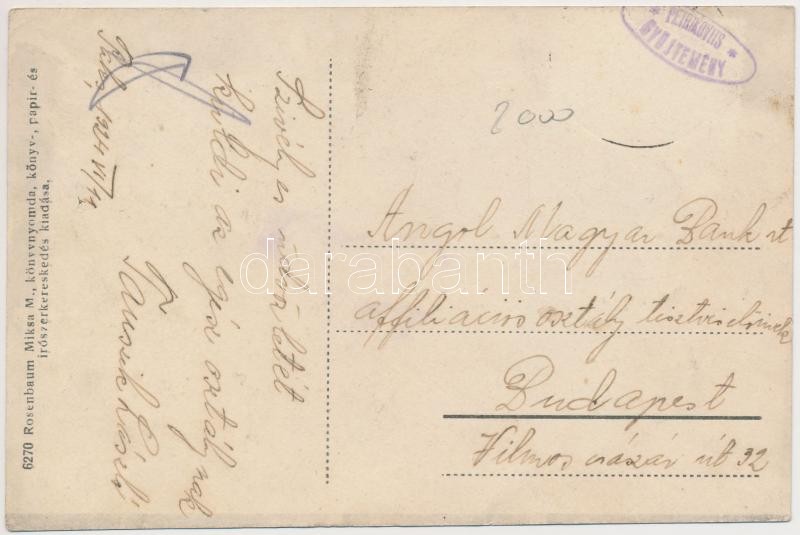 6270 Rosenbaum Miksa M., könyvnyomda, könyv-, papir- és
irószerkereskedés kiadása.
1924 VI/14
Szivélyes üdvözletét
küldi az egész osztálynak
László
PETRIKOVITS
* GYŰJTEMÉNY *
2000
Angol Magyar Bank rt
affiliációs osztály tisztviselőinek
Budapest
Vilmos császár út 32
darabanth